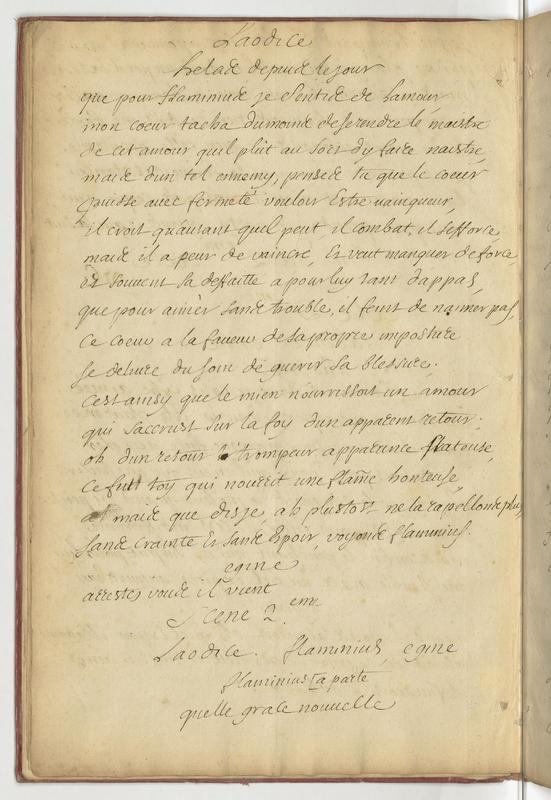 Laodice
helas depuis le jour
que pour flaminius je sentis de lamour
mon coeur tacha dumoins deserendre le maistre
de cet amour quil plût au sort dy faire naistre,
mais dun tel ennemy, penses tu que le coeur
puisse avec fermeté vouloir Estre vainqueur,
il croit quautant quil peut il combat, il sefforce,
mais il a peur de vaincre, Et veut manquer de force,
et souvent sa deffaitte a pour luy tant dappas,
que pour aimer sans trouble, il feint de naimer pas,
ce coeur a la faveur desapropre imposture
se delivre du soin de guerir sa blessure.
cest ainsy que le mien nourrissoit un amour
qui saccrust sur la foy dun apparent retour.
oh dun retour trompeur apparence flateuse,
ce fust toy qui nourrit une flame honteuse,
mais que disje, ah plustost ne la rapellons plus,
sans crainte Et sans Espoir, voyons flaminius.
egine
arrestes vous il vient
Scene 2.eme
Laodice. flaminius, egine
flaminius a parte
quelle grace nouvelle